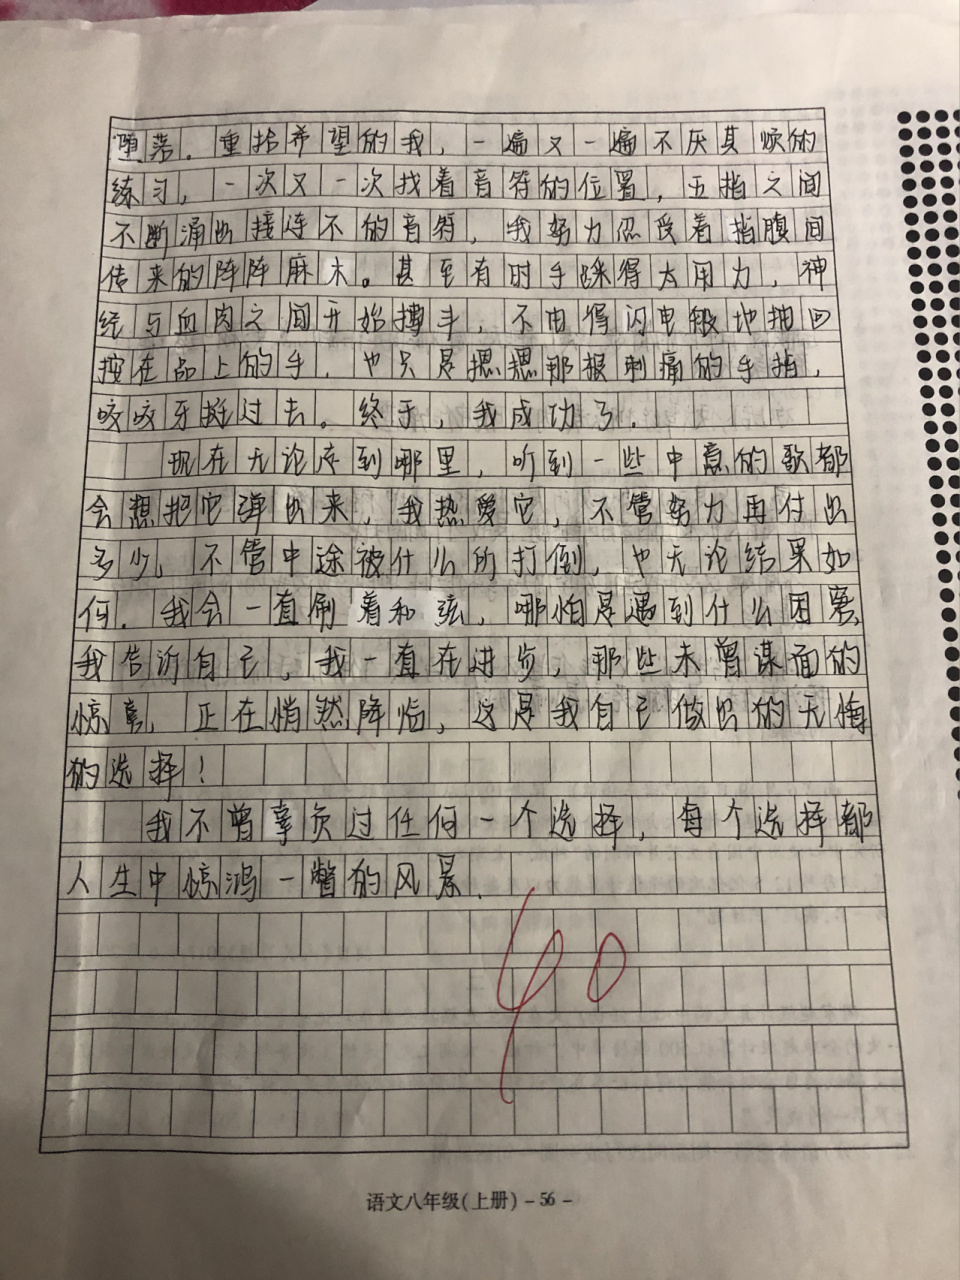 堕落。重拾希望的我，一遍又一遍不厌其烦的
练习，一次又一次找着音符的位置，五指之间
不断涌出接连不的音符，我努力忍受着指腹间
传来的阵阵麻木。甚至有时手踩得太用力，神
经与血肉之间开始搏斗，不由得闪电般地抽回
按在品上的手，也只是摁摁那根刺痛的手指，
咬咬牙挺过去。终于，我成功了。
现在无论走到哪里，听到一些中意的歌都
会想把它弹出来，我热爱它，不管努力再付出
多少，不管中途被什么所打倒，也无论结果如
何。我会一直刷着和弦，哪怕是遇到什么困惑，
我告诉自己，我一直在进步，那些未曾谋面的
惊喜，正在悄然降临，这是我自己做出的无悔
的选择！
我不曾辜负过任何一个选择，每个选择都
人生中惊鸿一瞥的风景。
40
语文八年级(上册) - 56 -